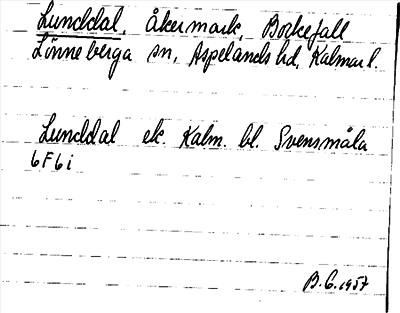 Lunddal, åkermark, Bockefall
Lönneberga sn, Aspelands hd, Kalmar l.
Lunddal ek. Kalm. bl. Svensmåla
6F6i
B.G. 1957